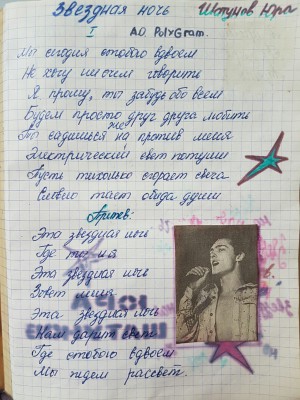 Звездная ночь
Шкунов Юра
I
А.О. PolyGram.
Мы сегодня с тобою вдвоем
Не хочу ни о чем говорить
Я прошу, ты забудь обо всем
Будем просто друг друга любить
Ты садишься на против меня
Электрический свет потуши
Пусть тихонько сгорает свеча
Словно тает обида души
Припев:
Эта звездная ночь
Где ты и я
Эта звездная ночь
Зовет меня
Эта звездная ночь
Нам дарит свет
Где с тобою вдвоем
Мы ждем рассвет.